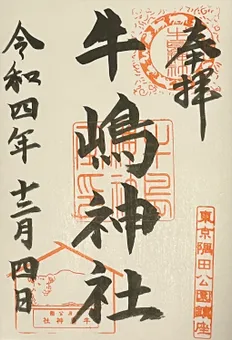 奉拝
牛嶋神社
令和四年 十二月四日
東京隅田公園鎮座